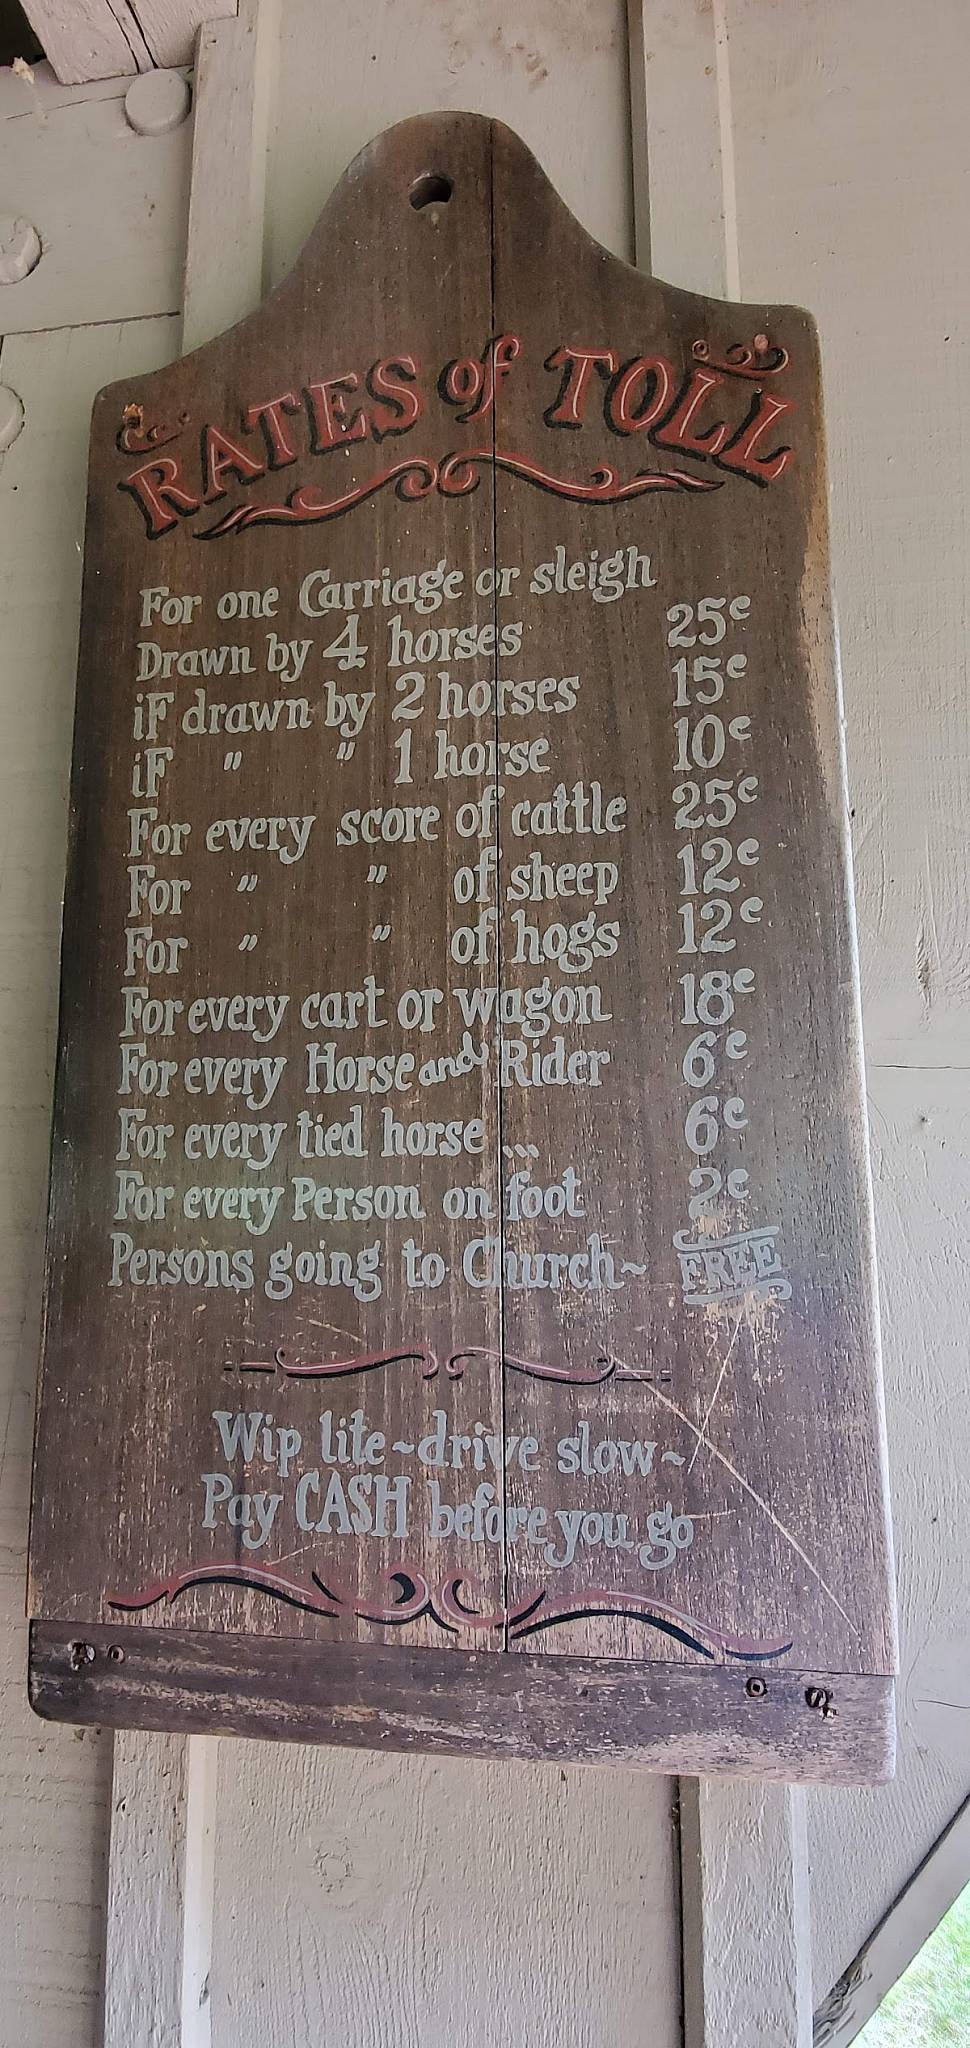 RATES of TOLL
For one Carriage or sleigh
Drawn by 4 horses 25c
iF drawn by 2 horses 15c
iF " " 1 horse 10c
For every score of cattle 25c
For " " of sheep 12c
For " " of hogs 12c
For every cart or wagon 18c
For every Horse and Rider 6c
For every tied horse ... 6c
For every Person on foot 2c
Persons going to Church~ FREE
Wip lite~drive slow~
Pay CASH before you go